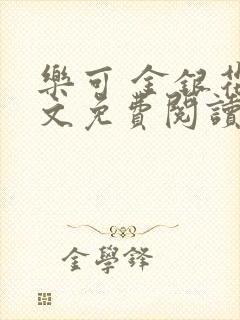 樂可 金銀花
文免費閱讀
金學鋒